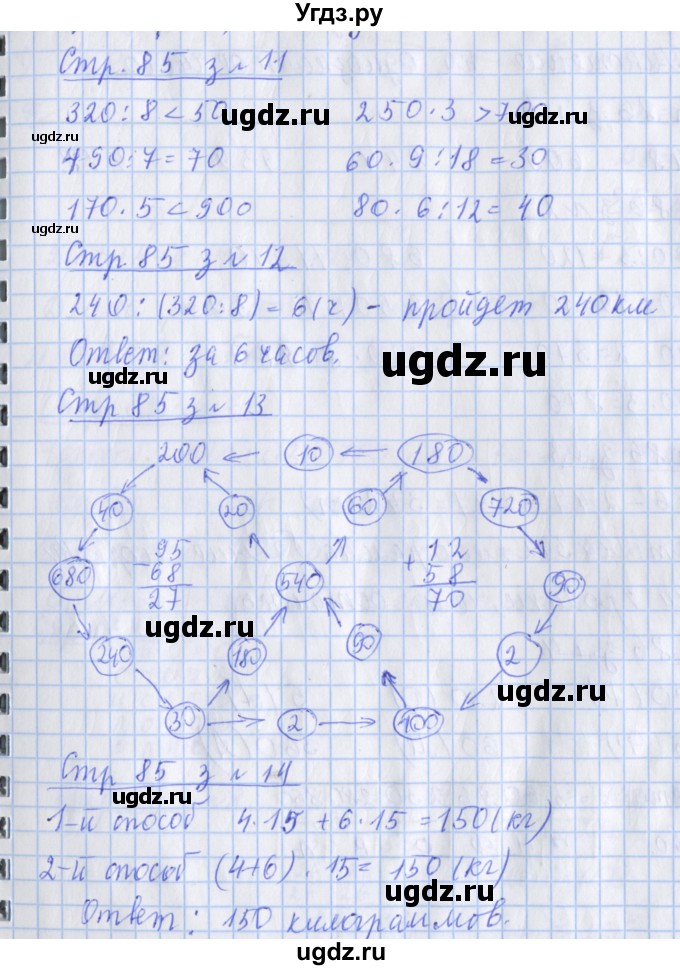 Угдз.ру
Стр. 85 з № 11
320 : 8 < 50 250 · 3 > 700
490 : 7 = 70 60 · 9 : 18 = 30
170 · 5 < 900 80 · 6 : 12 = 40
Стр. 85 з № 12
240 : (320 : 8) = 6 (ч) - пройдет 240 км
Ответ: за 6 часов.
Стр 85 з № 13
200 ← 10 ← 180
40 20 60 720
95 12
680 - 68 540 + 58 90
27 70
240 180 90 2
30 → 2 → 400
Стр 85 з № 14
1-й способ 4 · 15 + 6 · 15 = 150 (кг)
2-й способ (4+6) · 15 = 150 (кг)
Ответ: 150 килограммов.
ugdz.ru
ugdz.ru
ugdz.ru
ugdz.ru
ugdz.ru
ugdz.ru
ugdz.ru
ugdz.ru
ugdz.ru
ugdz.ru
ugdz.ru
ugdz.ru
ugdz.ru